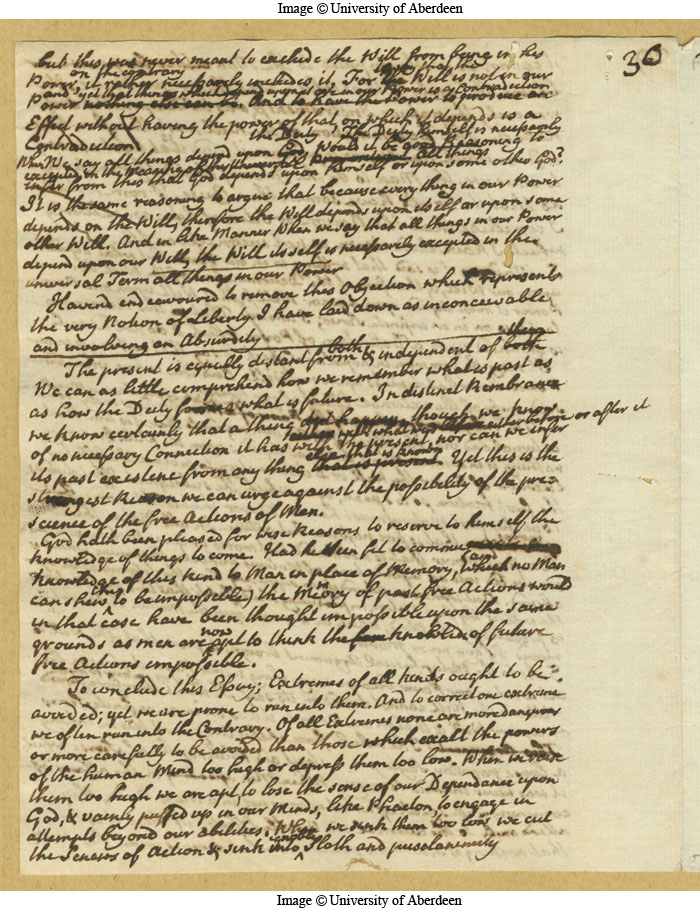 Image © University of Aberdeen
30
but this was never meant to exclude the Will from being in his
on the contrary
Power, it rather necessarily includes it, For the Will is not in our
and yet that things which depend upon it are in our Power is a Contradiction
Power nothing else can be. And to have the Power to produce an
Effect without having the power of that, on which it depends is a
Contradiction
the Deity, The Deity himself is necessarily
When We say all things depend upon God, would it be good Reasoning to
excepted in the meaning of the universal all things
infer from this that God depends upon himself or upon some other God?
It is the same reasoning to argue that because every thing in our Power
depends on the Will, therefore the Will depends upon itself or upon some
other Will. And in like Manner When we say that all things in our Power
depend upon our Will, the Will its self is necessarily excepted in the
universal Term all things in our Power
Having endeavoured to remove this Objection which represents
the very Notion of Liberty I have laid down as inconceivable
and involving an Absurdity
both them
The present is equally distant from & independent of both
We can as little comprehend how we remember what is past as
as how the Deity forsees what is future. In distinct Remembrance
we know certainly that a thing did happen, though we know
either with what was either before or after it
of no necessary Connection it has with the present, nor can we infer
else that is known
its past existence from any thing that is present. Yet this is the
strongest Reason we can urge against the possibility of the pre-
science of the free Actions of Men.
God hath been pleased for wise Reasons to reserve to himself the
knowledge of things to come. Had he been
knowledge of this kind to Man in place of Memory, (and which no Man
can shew to be impossible) the Memory of past free Actions would
in that case have been thought impossible upon the same
now
grounds as men are apt to think the free knowledge of future
free Actions impossible.
To conclude this Essay; Extremes of all kinds ought to be
avoided; yet we are prone to run into them. And to correct one extreme
we often run into the Contrary. Of all Extremes none are more dangerous
or more carefully to be avoided than those which exalt the powers
of the human Mind too high or depress them too low. When we raise
them too high we are apt to lose the sense of our Dependance upon
God, & vainly puffed up in our Minds, like Phaeton, to engage in
attempts beyond our abilities. When we sink them too low we cut
the Sinews of Action & sink into Sloth and pusilanimity
Image © University of Aberdeen